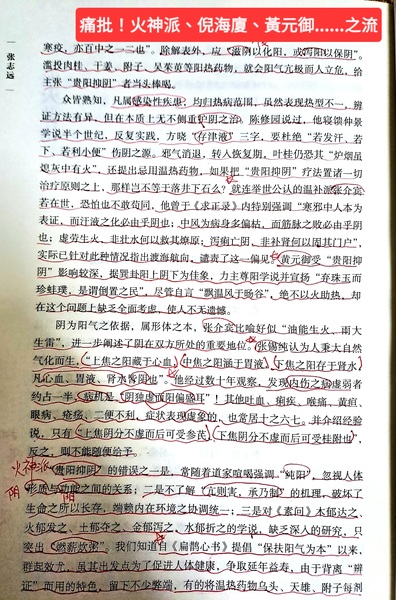 痛批！火神派、倪海廈、黃元御……之流
张志远
寒疫，亦百中之一二也”。除解表外，应“滋阴以化阳，或泻阳以保阴”。
滥投肉桂、干姜、附子、吴茱萸等阳热药物，就会阳气亢极而人立危，给
主张“贵阳抑阴”者当头棒喝。
众皆熟知，凡属感染性疾患，均归热病范围，虽然表现热型不一，辨
证方法有异，但在本质上无不侧重护阴之治。陈修园说过，他寝馈仲景
学说半个世纪，反复实践，方晓“存津液”三字，要杜绝“若发汗、若
下、若利小便”伤阴之源。邪气消退，转入恢复期，叶桂仍恐其“炉烟虽
熄灰中有火”，还提出忌用温热药物，如果把“贵阳抑阴”疗法置诸一切
治疗原则之上，那样岂不等于落井下石么？就连举世公认的温补派张介宾
若在世，恐怕也不敢苟同，他曾于《求正录》内特别强调“寒邪中人本为
表证，而汗液之化必由乎阴也；中风为病身多偏枯，而筋脉之败必由乎阴
也；虚劳生火，非壮水何以救其燎原；泻痢亡阴，非补肾何以固其门户”，
实际已针对此种情况指出渡海航向，谴责了这一偏见。黄元御受“贵阳抑
阴”影响较深，据巽卦阳上阴下为佳象，力主尊阳学说并宣扬“弃珠玉而
珍蛙璞，是谓倒置之民”，尽管自言“飘温风于旸谷”，绝不以火助热，却
在这个问题上缺乏全面考虑，使人不无遗憾。
阴为阳气之依据，属形体之本，张介宾比喻好似“油能生火、雨大
生雷”，进一步阐述了阴在双方所处的重要地位。张锡纯认为人秉大自然
气化而生，“上焦之阳藏于心血，中焦之阳涵于胃液，下焦之阳存于肾水，
凡心血、胃液、肾水皆阴也”。他经过数十年观察，发现内伤之病虚弱者
约占一半，病机是“阴独虚而阳偏盛耳”！其他吐血、痢疾、喉痛、黄疸、
眼病、疮疡、二便不利，症状表现虚象的，也常居十之六七。并介绍经验
说，只有“上焦阴分不虚而后可受参芪，下焦阴分不虚而后可受桂附也”，
反之，则不能随便给予。
火神派
“贵阳抑阴”的错误之一是，常随着道家喧喝强调“纯阳”，忽视人体
阴 阳
形质与功能之间的关系；二是不了解“亢则害，承乃制”的机理，破坏了
生命之所以长存，端赖内在环境之协调统一；三是对《素问》木郁达之、
火郁发之、土郁夺之、金郁泻之、水郁折之的学说，缺乏深入的研究，只
突出“燃薪救粥”。我们知道自《扁鹊心书》提倡“保扶阳气为本”以来，
群起效尤，虽其出发点为了促进人体健康，争取延年益寿，由于背离“辨
证”而用的特色，留下不少弊端，有的将温热药物乌头、天雄、附子每剂